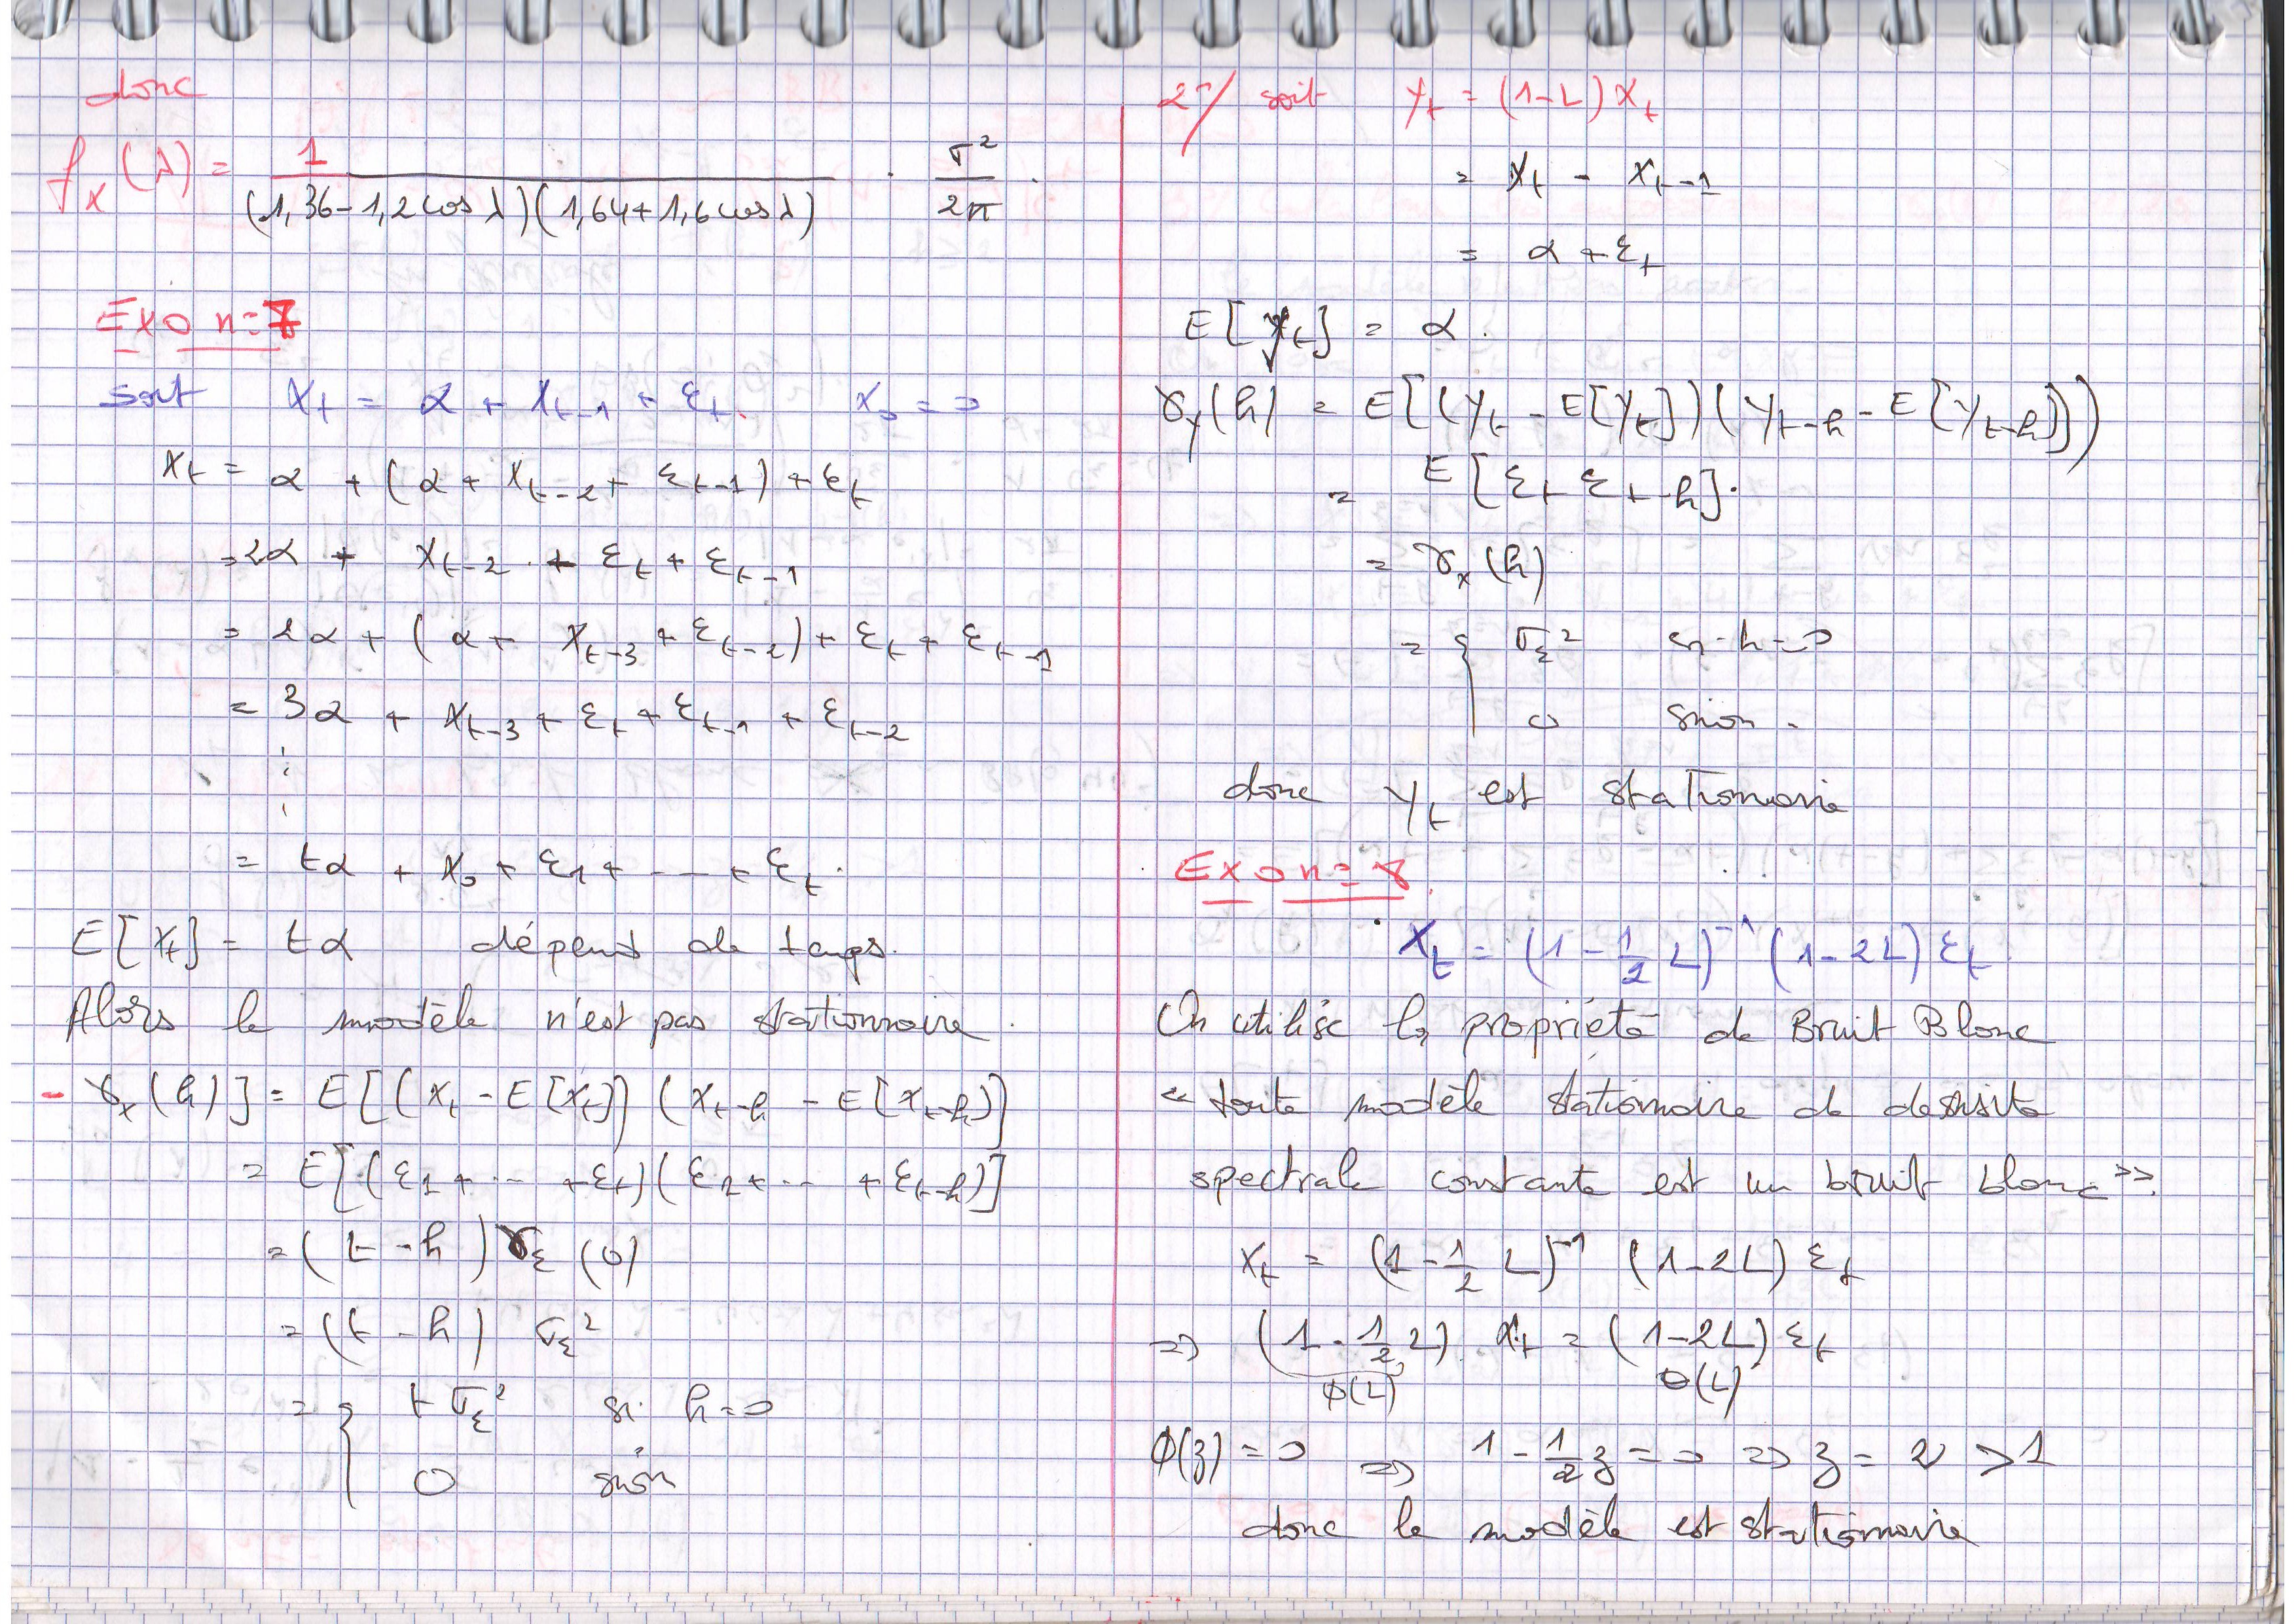 donc
f_X(λ) = 1 / ((1,36-1,2cosλ)(1,64+1,6cosλ)) . σ²/2π .
Exo n=7
soit X_t = α + X_{t-1} + ε_t. X_0 = 0
X_t = α + (α + X_{t-2} + ε_{t-1}) + ε_t
= 2α + X_{t-2} + ε_t + ε_{t-1}
= 2α + (α + X_{t-3} + ε_{t-2}) + ε_t + ε_{t-1}
= 3α + X_{t-3} + ε_t + ε_{t-1} + ε_{t-2}
⋮
= tα + X_0 + ε_1 + --- + ε_t.
E[X_t] = tα dépend de temps.
Alors le modèle n'est pas stationnaire.
- γ_x(h)] = E[(X_t - E[X_t])(X_{t-h} - E[X_{t-h}])]
= E[(ε_1 + ... + ε_t)(ε_1 + ... + ε_{t-h})]
= (t-h) γ_ε(0)
= (t-h) σ_ε²
= { t σ_ε² si h=0
0 sinon
2-/ soit Y_t = (1-L)X_t
= X_t - X_{t-1}
= α + ε_t
E[Y_t] = α.
γ_y(h) = E[(Y_t - E[Y_t])(Y_{t-h} - E[Y_{t-h}])]
= E[ε_t ε_{t-h}].
= γ_x(h)
= { σ_ε² si h=0
0 sinon.
donc Y_t est stationnaire
Exo n=8
X_t = (1 - 1/2 L)^{-1} (1-2L) ε_t
On utilise la propriété de Bruit Blanc
« toute modèle stationnaire de densité
spectrale constante est un bruit blanc ».
X_t = (1 - 1/2 L)^{-1} (1-2L) ε_t
=> (1 - 1/2 L) X_t = (1-2L) ε_t
φ(L) θ(L)
φ(z) = 0 => 1 - 1/2 z = 0 => z = 2 > 1
donc le modèle est stationnaire